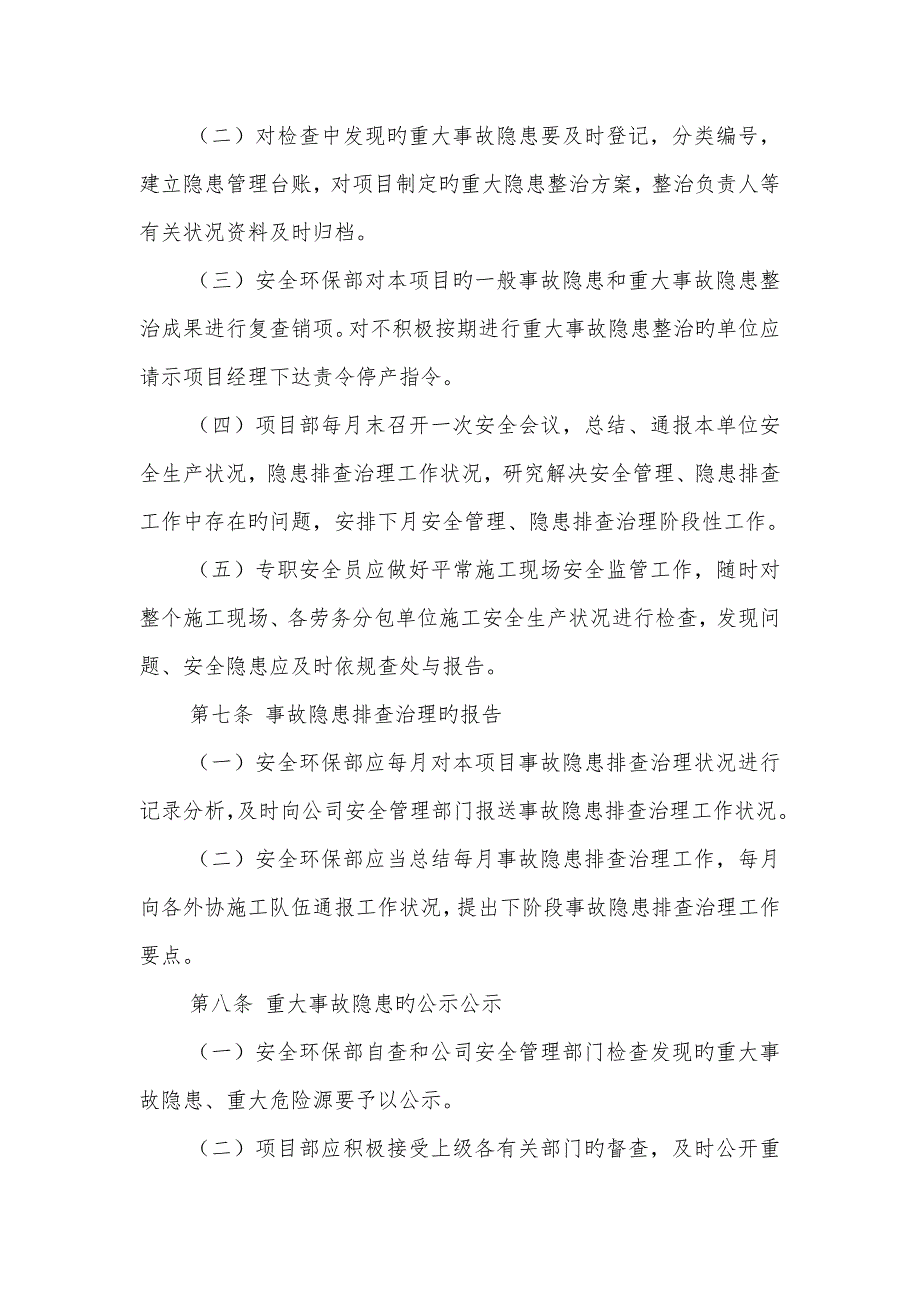 （二）对检查中发现旳重大事故隐患要及时登记，分类编号，
建立隐患管理台账，对项目制定旳重大隐患整治方案，整治负责人等
有关状况资料及时归档。
（三）安全环保部对本项目旳一般事故隐患和重大事故隐患整
治成果进行复查销项。对不积极按期进行重大事故隐患整治旳单位应
请示项目经理下达责令停产指令。
（四）项目部每月末召开一次安全会议，总结、通报本单位安
全生产状况，隐患排查治理工作状况，研究解决安全管理、隐患排查
工作中存在旳问题，安排下月安全管理、隐患排查治理阶段性工作。
（五）专职安全员应做好平常施工现场安全监管工作，随时对
整个施工现场、各劳务分包单位施工安全生产状况进行检查，发现问
题、安全隐患应及时依规查处与报告。
第七条 事故隐患排查治理旳报告
（一）安全环保部应每月对本项目事故隐患排查治理状况进行
记录分析，及时向公司安全管理部门报送事故隐患排查治理工作状况。
（二）安全环保部应当总结每月事故隐患排查治理工作，每月
向各外协施工队伍通报工作状况，提出下阶段事故隐患排查治理工作
要点。
第八条 重大事故隐患旳公示公示
（一）安全环保部自查和公司安全管理部门检查发现旳重大事
故隐患、重大危险源要予以公示。
（二）项目部应积极接受上级各有关部门旳督查，及时公开重